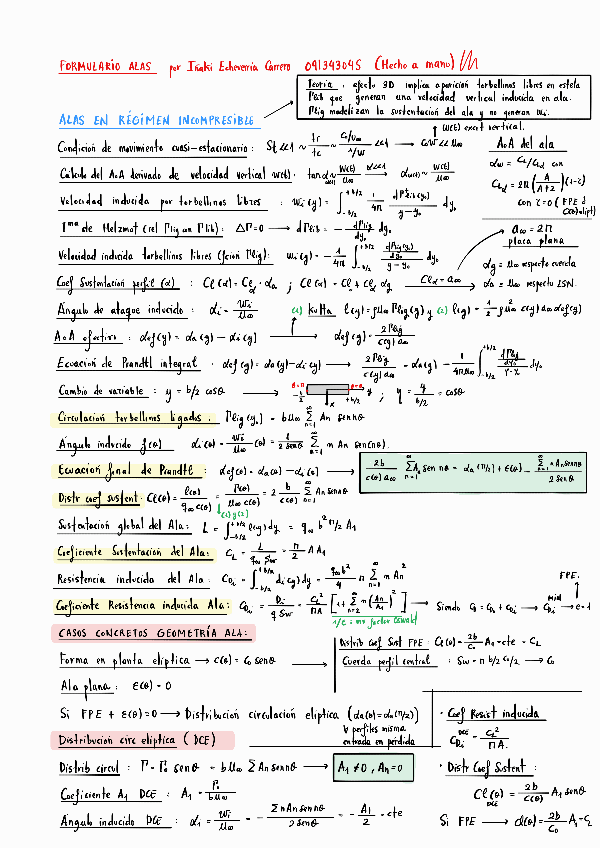 FORMULARIO ALAS por Iñaki Echeverría Carrero 091343045 (Hecho a mano)
Teoría : efecto 3D implica aparición torbellinos libres en estela
Γlib que generan una velocidad vertical inducida en ala.
Γlig modelizan la sustentación del ala y no generan wi.
ALAS EN RÉGIMEN INCOMPRESIBLE
↑ W(t) excit vertical.
Condición de movimiento cuasi-estacionario: St<<1 ~ tr/tc ~ (c/u∞)/(1/W) <<1 → cW << u∞
AoA del ala
αw = CL/CLα con
Cálculo del AoA derivado de velocidad vertical w(t). tan α ~ w(t)/u∞ → α w(t) ~ w(t)/u∞
CLα = 2Π (Λ/(Λ+2)) (1-τ)
con τ=0 (FPE y
Velocidad inducida por torbellinos libres : wi(y) = ∫ -b/2 +b/2 1/4π dΓlib(y0)/(y-y0) dy0
Tma de Helzmot (rel Γlig con Γlib) : ΔΓ=0 → dΓlib = - dΓlig/dy0 dy0
a∞ = 2Π
placa plana
Velocidad inducida torbellinos libres (fcion Γlig): wi(y) = -1/4π ∫ -b/2 +b/2 (dΓlig(y0)/dy0)/(y-y0) dy0
αg = u∞ respecto cuerda
Coef Sustentación perfil (α) : Cl(α) = Clα · αa ; Cl(α) = Cl0 + Clα αg Clα = a∞
αa = u∞ respecto LSN.
Ángulo de ataque inducido : αi = wi/u∞ (1) Kutta l(y) = ρu∞Γlig(y) y (2) l(y) = 1/2 ρu∞² c(y) a∞ αef(y)
AoA efectivo : αef(y) = αa(y) - αi(y) → αef(y) = 2Γlig/(c(y) a∞)
Ecuación de Prandtl integral · αef(y) = αa(y) - αi(y) → 2Γlig/(c(y) a∞) = αa(y) - 1/(4πu∞) ∫ -b/2 +b/2
Cambio de variable : y = b/2 cosθ → ; η = y/(b/2) = cosθ
Circulación torbellinos ligados. Γlig(y0) = b u∞ Σ n=1 ∞ An sen nθ
Ángulo inducido f(θ) αi(θ) = wi/u∞ (θ) = 1/(2 senθ) Σ n=1 ∞ n An sen(nθ).
Ecuación final de Prandtl : αef(θ) = αa(θ) - αi(θ) → 2b/(c(θ) a∞) Σ n=1 ∞ An sen nθ = αa(π/2) + ε(θ) - Σ n=1 ∞ n An sen nθ/(2 senθ)
Distr coef sustent: Cl(θ) = l(θ)/(q∞ c(θ)) = Γ(θ)/(u∞ c(θ)) = 2 b/c(θ) Σ n=1 ∞ An sen nθ
(1) y (2)
Sustentación global del Ala : L = ∫ -b/2 +b/2 l(y) dy = q∞ b² π/2 A1
Coeficiente Sustentación del Ala: CL = L/(q∞ Sw) = π/2 Λ A1
Resistencia inducida del Ala
FPE.
Coeficiente Resistencia inducida Ala: CDi = Di/(q Sw) = CL²/(πΛ) [1 + Σ n=2 ∞ n (An/A1)²] → Siendo CD = CD0 + CDi → e=1
1/e : mr factor Oswald
CASOS CONCRETOS GEOMETRÍA ALA:
Distrib Coef Sust FPE: Cl(θ) = 2b/C0 A1 = cte = CL
Forma en planta elíptica → c(θ) = C0 senθ
Cuerda perfil central : Sw = π b/2 C0/2 → C0
Ala plana : ε(θ) = 0
Si FPE + ε(θ)=0 → Distribución circulación elíptica (αa(θ) = αa(π/2))
∀ perfiles misma
entrada en pérdida
· Coef Resist inducida
CDi DCE = CL²/(πΛ).
Distribución circ elíptica (DCE)
Distrib circul : Γ = Γ0 senθ = b u∞ Σ An sen nθ → A1 ≠ 0, An = 0
· Distr Coef Sustent :
Coeficiente A1 DCE : A1 = Γ0/(b u∞)
Cl(θ) DCE = 2b/c(θ) A1 senθ
Ángulo inducido DCE : αi = wi/u∞ = - Σ n An sen nθ/(2 senθ) = - A1/2 = cte
Si FPE → Cl(θ) = 2b/C0 A1 = CL